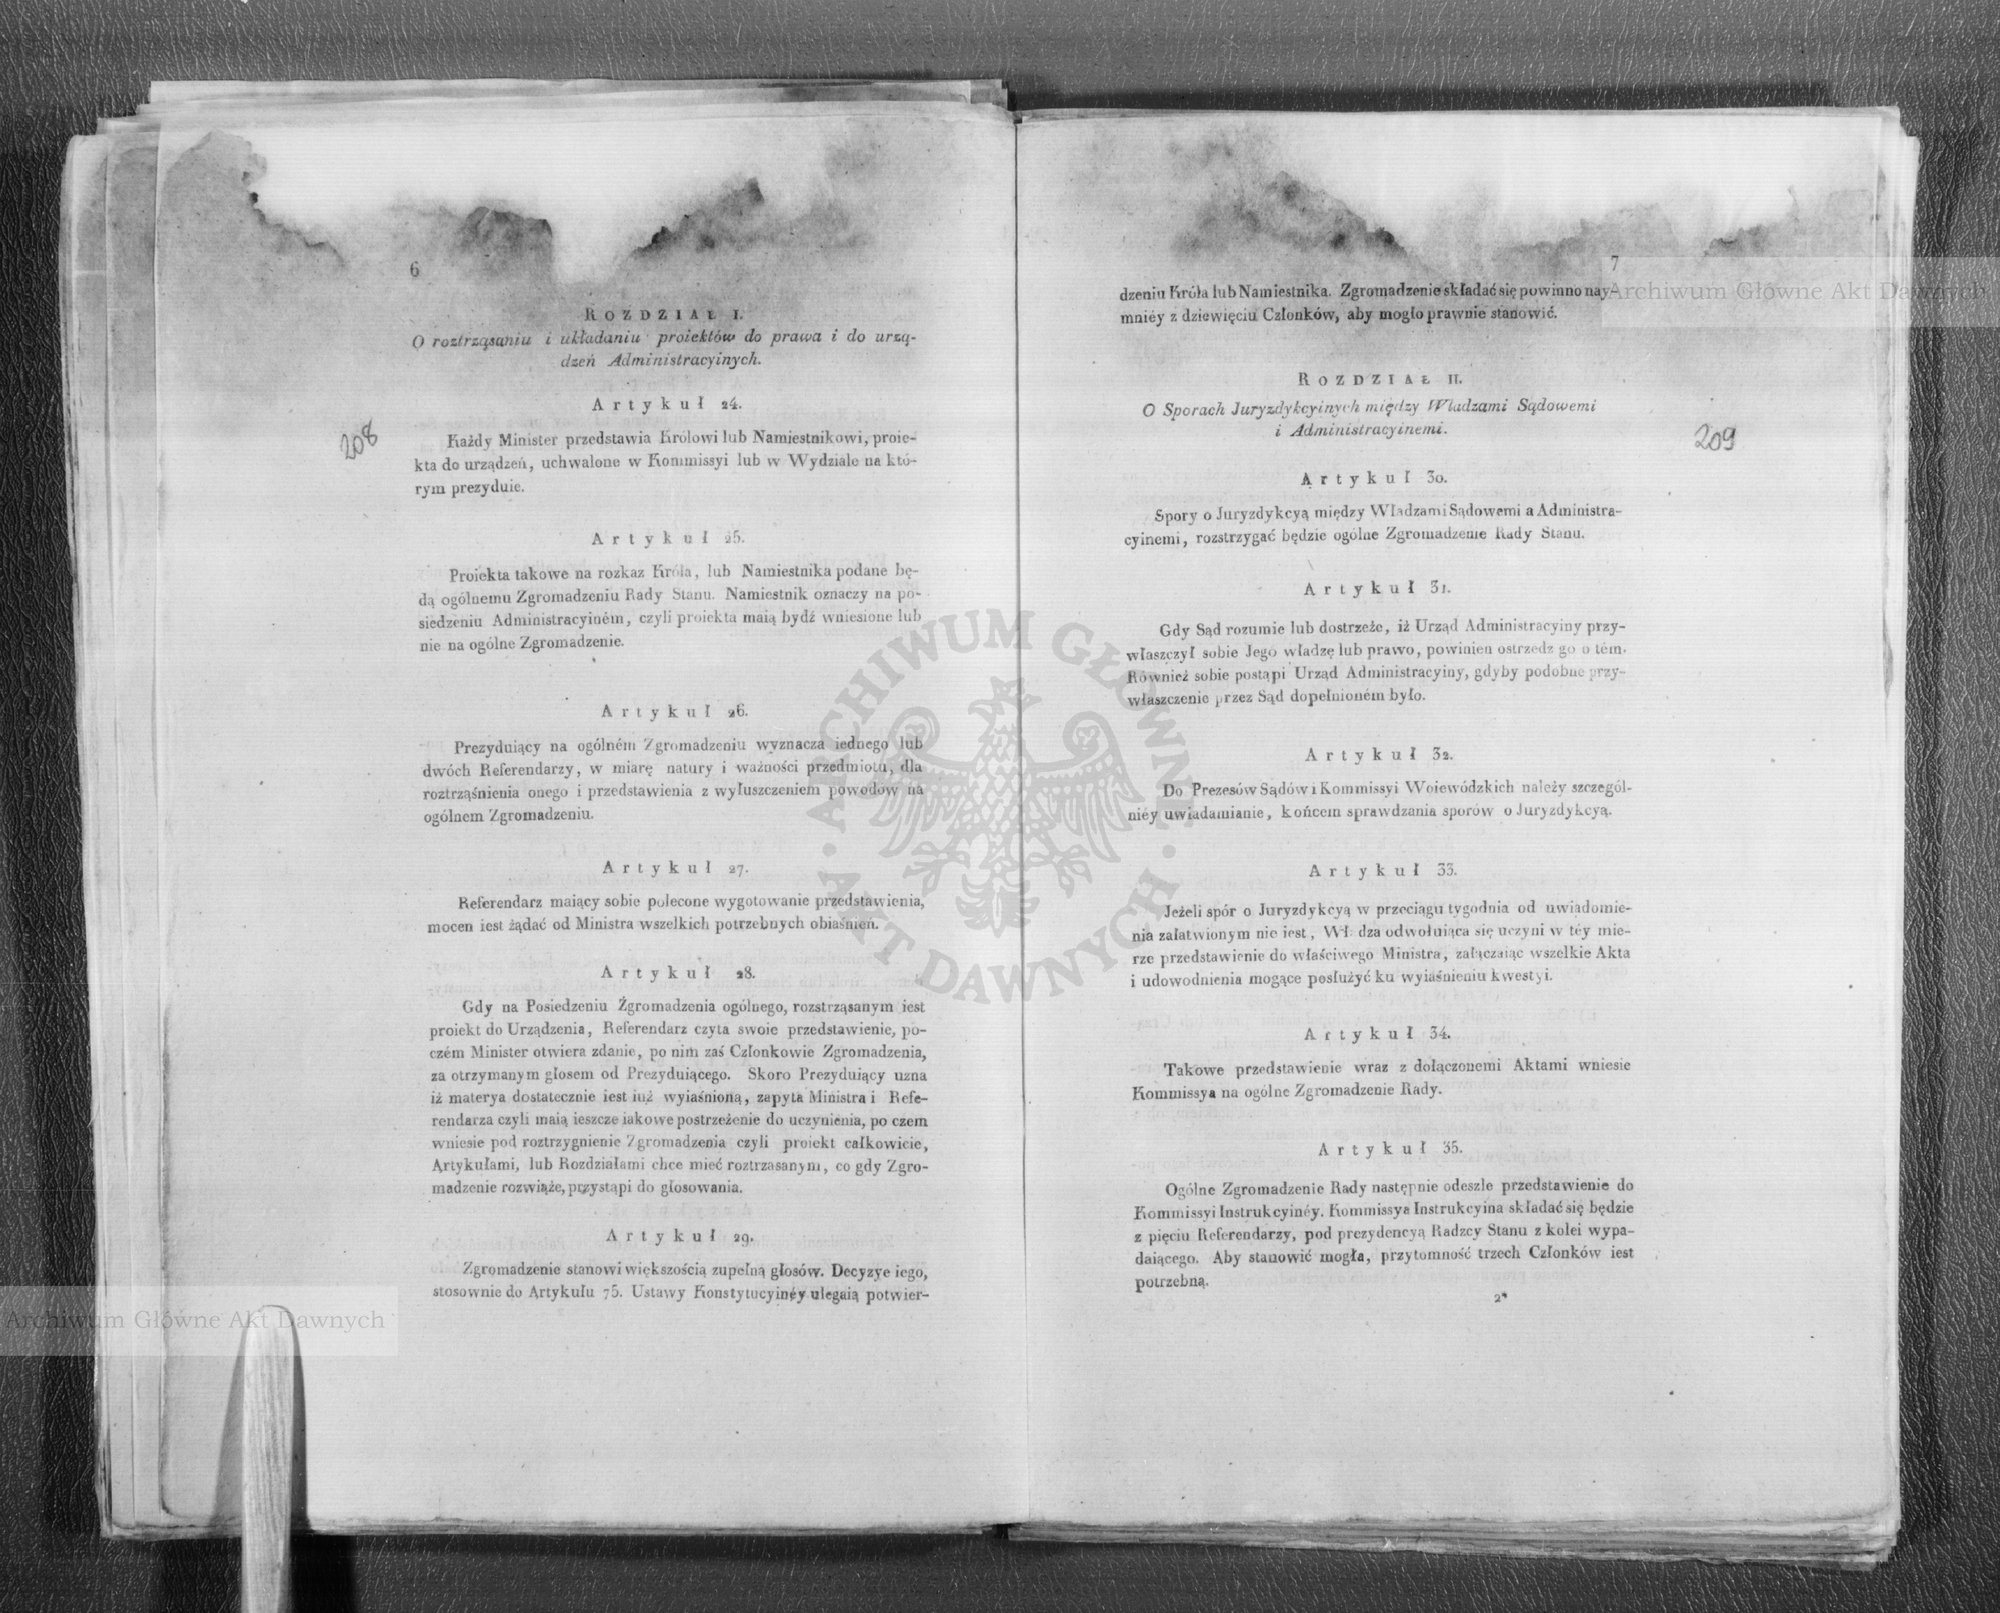 6
ROZDZIAŁ I.
O roztrząsaniu i układaniu proiektów do prawa i do urzą-
dzeń Administracyinych.
Artykuł 24.
208
Każdy Minister przedstawia Królowi lub Namiestnikowi, proie-
kta do urządzeń, uchwalone w Kommissyi lub w Wydziale na któ-
rym prezyduie.
Artykuł 25.
Proiekta takowe na rozkaz Króla, lub Namiestnika podane bę-
dą ogólnemu Zgromadzeniu Rady Stanu. Namiestnik oznaczy na po-
siedzeniu Administracyiném, czyli proiekta maią bydź wniesione lub
nie na ogólne Zgromadzenie.
Artykuł 26.
Prezyduiący na ogólném Zgromadzeniu wyznacza iednego lub
dwóch Referendarzy, w miarę natury i ważności przedmiotu, dla
roztrząśnienia onego i przedstawienia z wyłuszczeniem powodów na
ogólnem Zgromadzeniu.
Artykuł 27.
Referendarz maiący sobie polecone wygotowanie przedstawienia,
mocen iest żądać od Ministra wszelkich potrzebnych obiaśnień.
Artykuł 28.
Gdy na Posiedzeniu Zgromadzenia ogólnego, rozstrząsanym iest
proiekt do Urządzenia, Referendarz czyta swoie przedstawienie, po-
czém Minister otwiera zdanie, po nim zaś Członkowie Zgromadzenia,
za otrzymanym głosem od Prezyduiącego. Skoro Prezyduiący uzna
iż materya dostatecznie iest iuż wyiaśnioną, zapyta Ministra i Refe-
rendarza czyli maią ieszcze iakowe postrzeżenie do uczynienia, po czem
wniesie pod roztrzygnienie Zgromadzenia czyli proiekt całkowicie,
Artykułami, lub Rozdziałami chce mieć roztrzasanym, co gdy Zgro-
madzenie rozwiąże, przystąpi do głosowania.
Artykuł 29.
Zgromadzenie stanowi większością zupełną głosów. Decyzye iego,
stosownie do Artykułu 75. Ustawy Konstytucyinéy ulegaią potwier-
7
dzeniu Króla lub Namiestnika. Zgromadzenie składać się powinno nay-
mniéy z dziewięciu Członków, aby mogło prawnie stanowić.
ROZDZIAŁ II.
O Sporach Juryzdykcyinych między Władzami Sądowemi
i Administracyinemi.
209
Artykuł 30.
Spory o Juryzdykcyą między Władzami Sądowemi a Administra-
cyinemi, rozstrzygać będzie ogólne Zgromadzenie Rady Stanu.
Artykuł 31.
Gdy Sąd rozumie lub dostrzeże, iż Urząd Administracyiny przy-
właszczył sobie Jego władzę lub prawo, powinien ostrzedz go o tém.
Równieź sobie postąpi Urząd Administracyiny, gdyby podobne przy-
właszczenie przez Sąd dopełnioném było.
Artykuł 32.
Do Prezesów Sądów i Kommissyi Woiewódzkich należy szczegól-
niéy uwiadamianie, końcem sprawdzania sporów o Juryzdykcyą.
Artykuł 33.
Jeżeli spór o Juryzdykcyą w przeciągu tygodnia od uwiadomie-
nia załatwionym nie iest, Wł dza odwołuiąca się uczyni w téy mie-
rze przedstawienie do właściwego Ministra, załączaiąc wszelkie Akta
i udowodnienia mogące posłużyć ku wyiaśnieniu kwestyi.
Artykuł 34.
Takowe przedstawienie wraz z dołączonemi Aktami wniesie
Kommissya na ogólne Zgromadzenie Rady.
Artykuł 35.
Ogólne Zgromadzenie Rady następnie odeszle przedstawienie do
Kommissyi Instrukcyinéy. Kommissya Instrukcyina składać się będzie
z pięciu Referendarzy, pod prezydencyą Radzcy Stanu z kolei wypa-
daiącego. Aby stanowić mogła, przytomność trzech Członków iest
potrzebną.
2*
Archiwum Główne Akt Dawnych
Archiwum Główne Akt Dawnych
ARCHIWUM GŁÓWNE AKT DAWNYCH